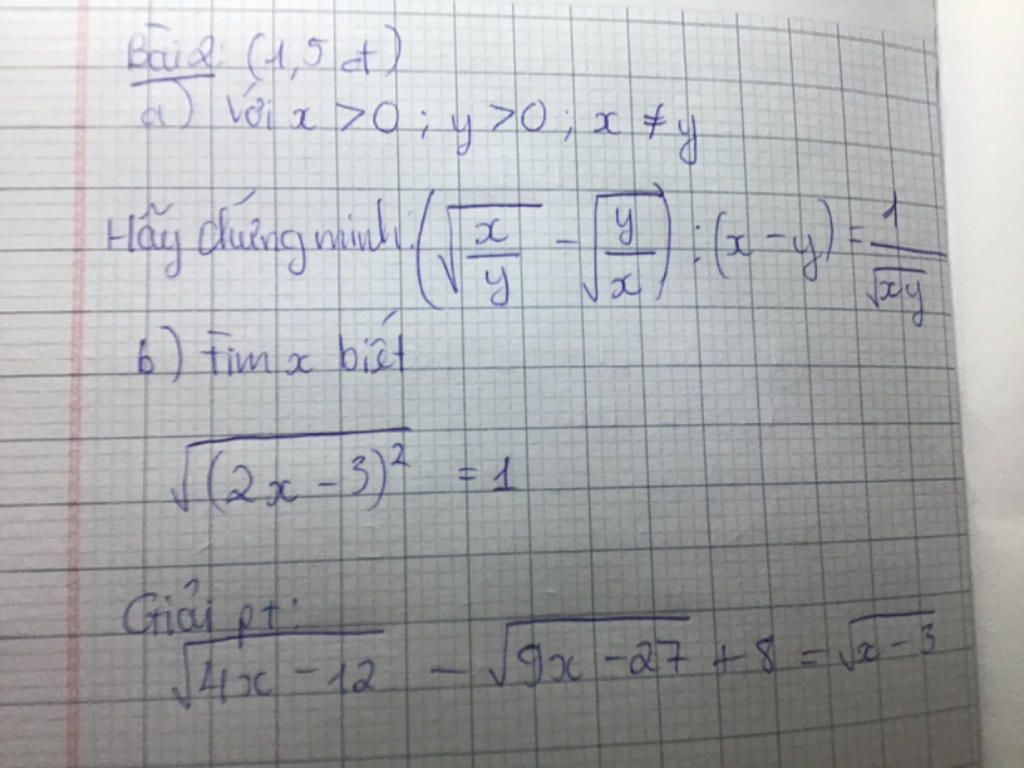 Bài 2: (1,5 đ)
a) Với x > 0 ; y > 0 ; x ≠ y
Hãy chứng minh: (√(x/y) - √(y/x)) : (x - y) = 1/√(xy)
b) Tìm x biết
√((2x - 3)²) = 1
Giải pt:
√(4x - 12) - √(9x - 27) + 8 = √(x - 3)